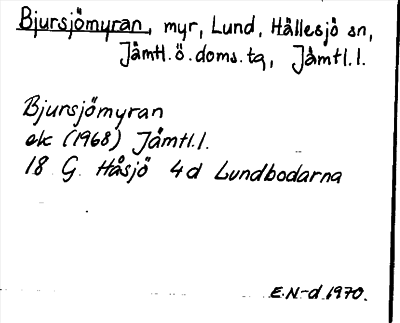 Bjursjömyran, myr, Lund, Hållesjö sn,
Jämtl.ö.doms.tg, Jämtl.l.
Bjursjömyran
ek (1968) Jämtl.l.
18 G. Håsjö 4d Lundbodarna
E.N-d.1970.